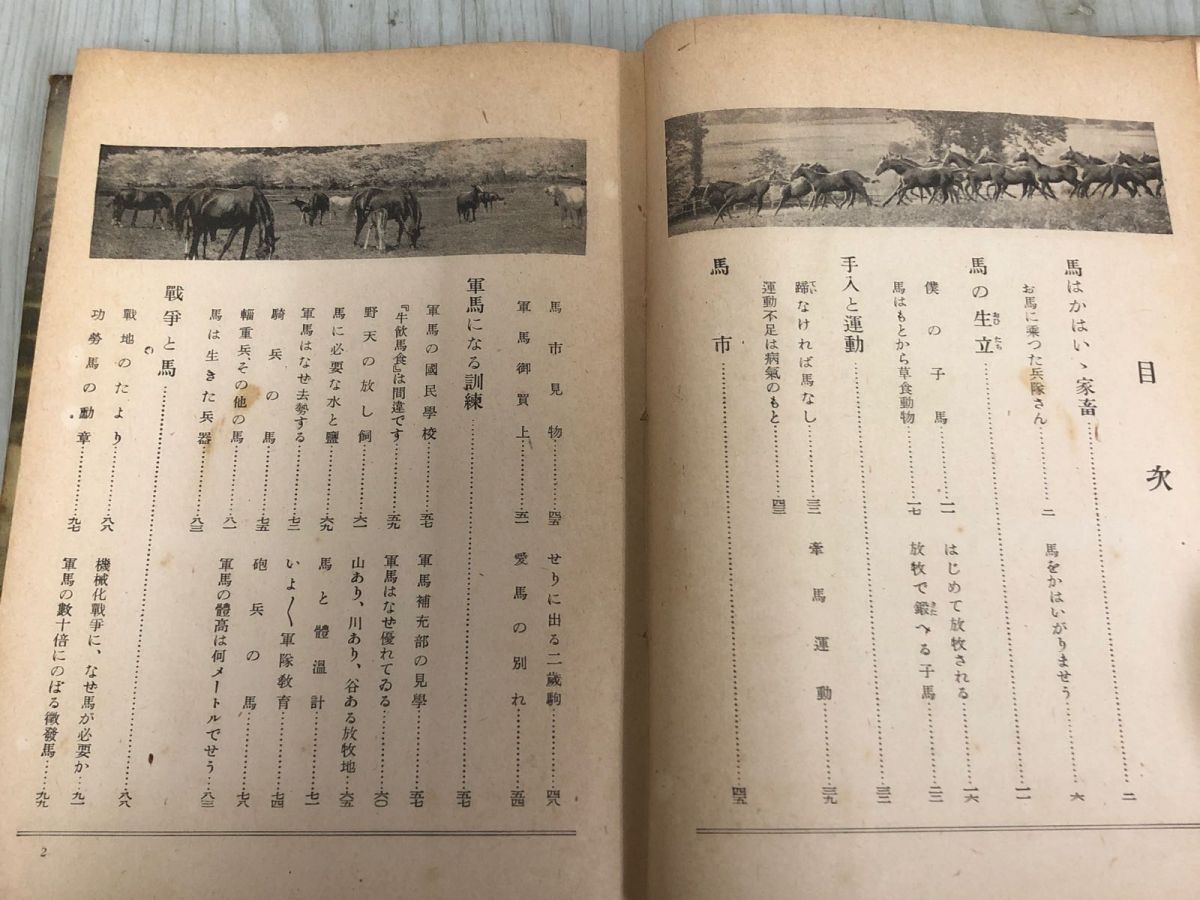 目次
馬はかはいゝ家畜……二
お馬に乗つた兵隊さん……二
馬をかはいがりませう……六
馬の生立……一一
おひたち
僕の子馬……一一
はじめて放牧される……一六
馬はもとから草食動物……一七
放牧で鍛へる子馬……二三
きた
手入と運動……三二
蹄なければ馬なし……三二
てい
牽馬運動……三九
運動不足は病氣のもと……四三
馬市……四五
馬市見物……四五
せりに出る二歳駒……四八
軍馬御買上……五一
愛馬の別れ……五四
軍馬になる訓練……五七
軍馬の國民學校……五七
軍馬補充部の見學……五七
『牛飮馬食』は間違です……五九
軍馬はなぜ優れてゐる……六〇
野天の放し飼……六一
山あり、川あり、谷ある放牧地……六五
馬に必要な水と鹽……六九
馬と體溫計……七一
軍馬はなぜ去勢する……七二
いよ〳〵軍隊敎育……七四
騎兵の馬……七五
砲兵の馬……七八
輜重兵、その他の馬……八一
軍馬の體高は何メートルでせう……八三
馬は生きた兵器……八三
戰爭と馬……八八
戰地のたより……八八
機械化戰爭に、なぜ馬が必要か……九一
功勞馬の勳章……九七
軍馬の數十倍にのぼる徵發馬……九九
2